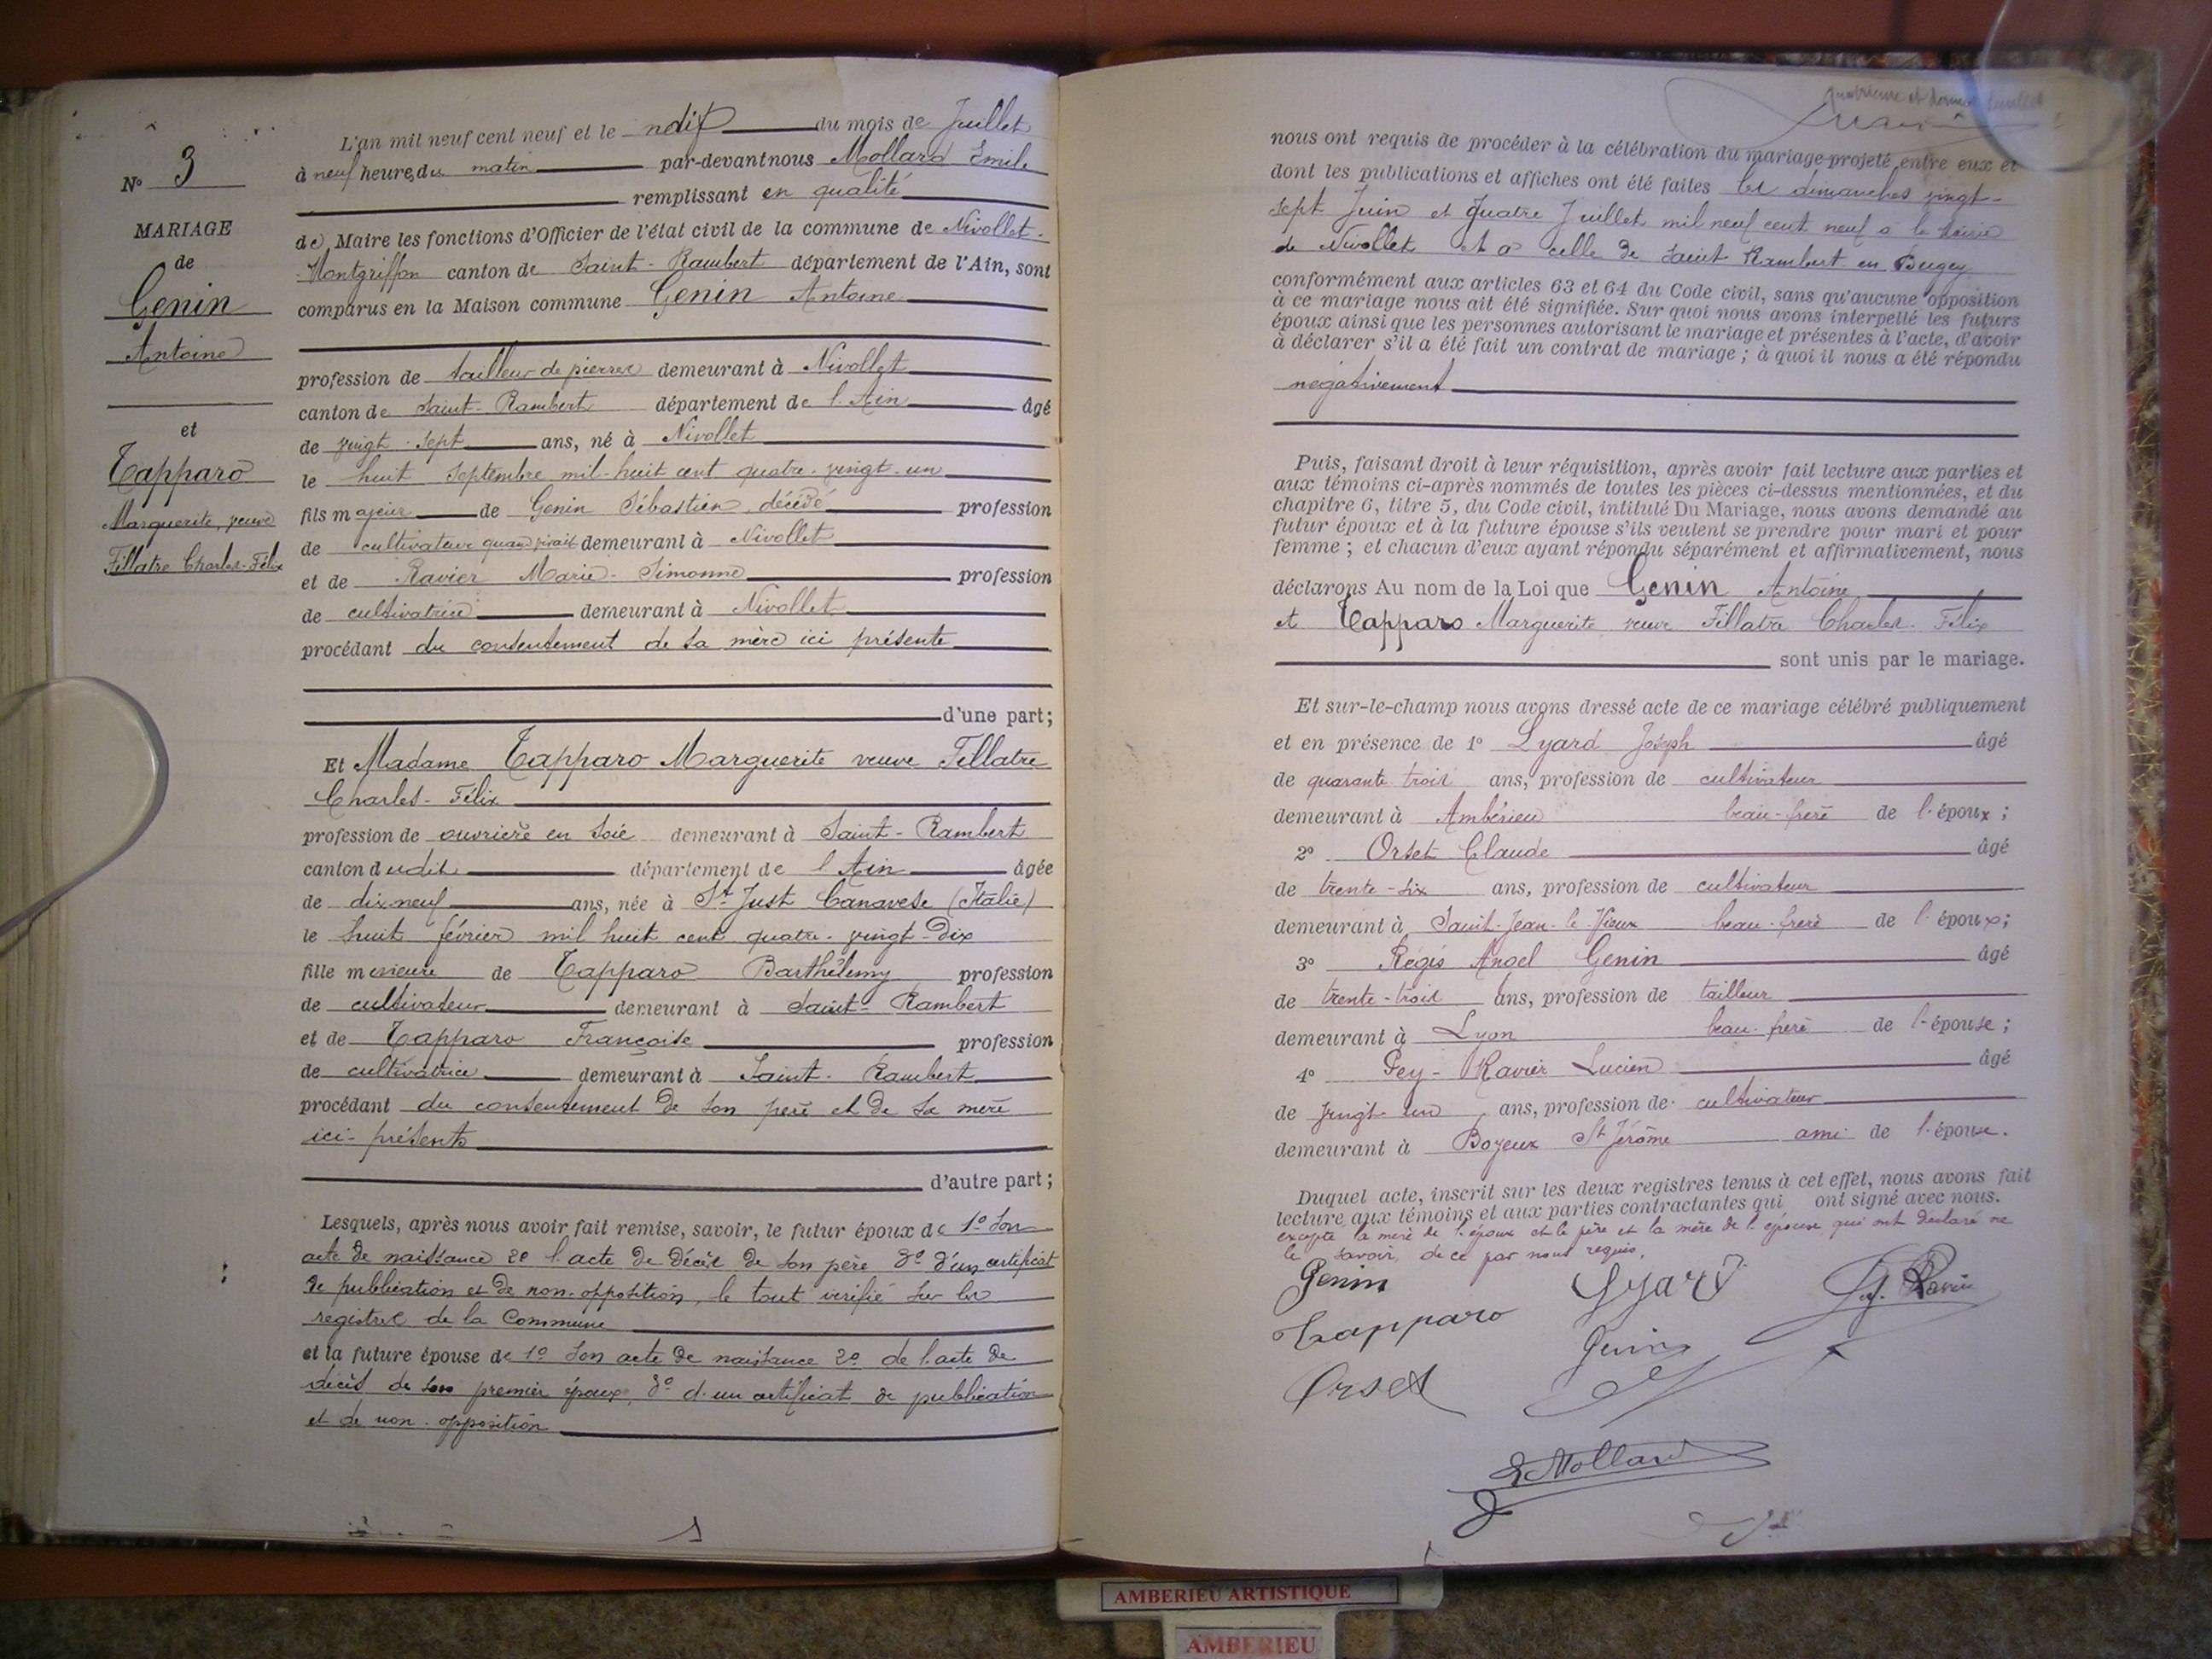 N° 3
MARIAGE
de
Genin
Antoine
et
Tapparo
Marguerite, veuve
Fillatre Charles-Félix
L'an mil neuf cent neuf et le dix du mois de Juillet
à neuf heures du matin par-devant nous Mollard Emile
remplissant en qualité
de Maire les fonctions d'Officier de l'état civil de la commune de Nivollet-
Montgriffon canton de Saint-Rambert département de l'Ain, sont
comparus en la Maison commune Genin Antoine
profession de tailleur de pierres demeurant à Nivollet
canton de Saint-Rambert département de l'Ain âgé
de vingt-sept ans, né à Nivollet
le huit septembre mil-huit cent quatre-vingt-un
fils majeur de Genin Sébastien, décédé profession
de cultivateur quand vivait demeurant à Nivollet
et de Ravier Marie-Simonne profession
de cultivatrice demeurant à Nivollet
procédant du consentement de sa mère ici présente
d'une part;
Et Madame Tapparo Marguerite veuve Fillatre
Charles-Félix
profession de ouvrière en soie demeurant à Saint-Rambert
canton dudit département de l'Ain âgée
de dix-neuf ans, née à St Just Canavese (Italie)
le huit février mil huit cent quatre-vingt-dix
fille mineure de Tapparo Barthélemy profession
de cultivateur demeurant à Saint-Rambert
et de Tapparo Françoise profession
de cultivatrice demeurant à Saint-Rambert
procédant du consentement de son père et de sa mère
ici-présents
d'autre part;
Lesquels, après nous avoir fait remise, savoir, le futur époux de 1° son
acte de naissance 2° l'acte de décès de son père 3° d'un certificat
de publication et de non-opposition, le tout vérifié sur les
registres de la Commune
et la future épouse de 1° son acte de naissance 2° de l'acte de
décès de son premier époux, 3° d'un certificat de publication
et de non-opposition
nous ont requis de procéder à la célébration du mariage projeté entre eux et
dont les publications et affiches ont été faites les dimanches vingt-
sept Juin et quatre Juillet mil neuf cent neuf à la Mairie
de Nivollet et à celle de Saint Rambert-en-Bugey
conformément aux articles 63 et 64 du Code civil, sans qu'aucune opposition
à ce mariage nous ait été signifiée. Sur quoi nous avons interpellé les futurs
époux ainsi que les personnes autorisant le mariage et présentes à l'acte, d'avoir
à déclarer s'il a été fait un contrat de mariage; à quoi il nous a été répondu
négativement
Puis, faisant droit à leur réquisition, après avoir fait lecture aux parties et
aux témoins ci-après nommés de toutes les pièces ci-dessus mentionnées, et du
chapitre 6, titre 5, du Code civil, intitulé Du Mariage, nous avons demandé au
futur époux et à la future épouse s'ils veulent se prendre pour mari et pour
femme; et chacun d'eux ayant répondu séparément et affirmativement, nous
déclarons Au nom de la Loi que Genin Antoine
et Tapparo Marguerite veuve Fillatre Charles-Félix
sont unis par le mariage.
Et sur-le-champ nous avons dressé acte de ce mariage célébré publiquement
et en présence de 1° Lyard Joseph âgé
de quarante-trois ans, profession de cultivateur
demeurant à Ambérieu beau-frère de l'époux;
2° Orset Claude âgé
de trente-six ans, profession de cultivateur
demeurant à Saint-Jean-le-Vieux beau-frère de l'époux;
3° Régis Angel Genin âgé
de trente-trois ans, profession de tailleur
demeurant à Lyon beau-frère de l'épouse;
4° Pey-Ravier Lucien âgé
de vingt-un ans, profession de cultivateur
demeurant à Boyeux St Jérôme ami de l'épouse.
Duquel acte, inscrit sur les deux registres tenus à cet effet, nous avons fait
lecture aux témoins et aux parties contractantes qui ont signé avec nous.
excepté la mère de l'époux et le père et la mère de l'épouse qui ont déclaré ne
le savoir, de ce par nous requis.
Genin Lyard P. Ravier
Tapparo Genin
Orset
E Mollard
AMBERIEU ARTISTIQUE
AMBERIEU